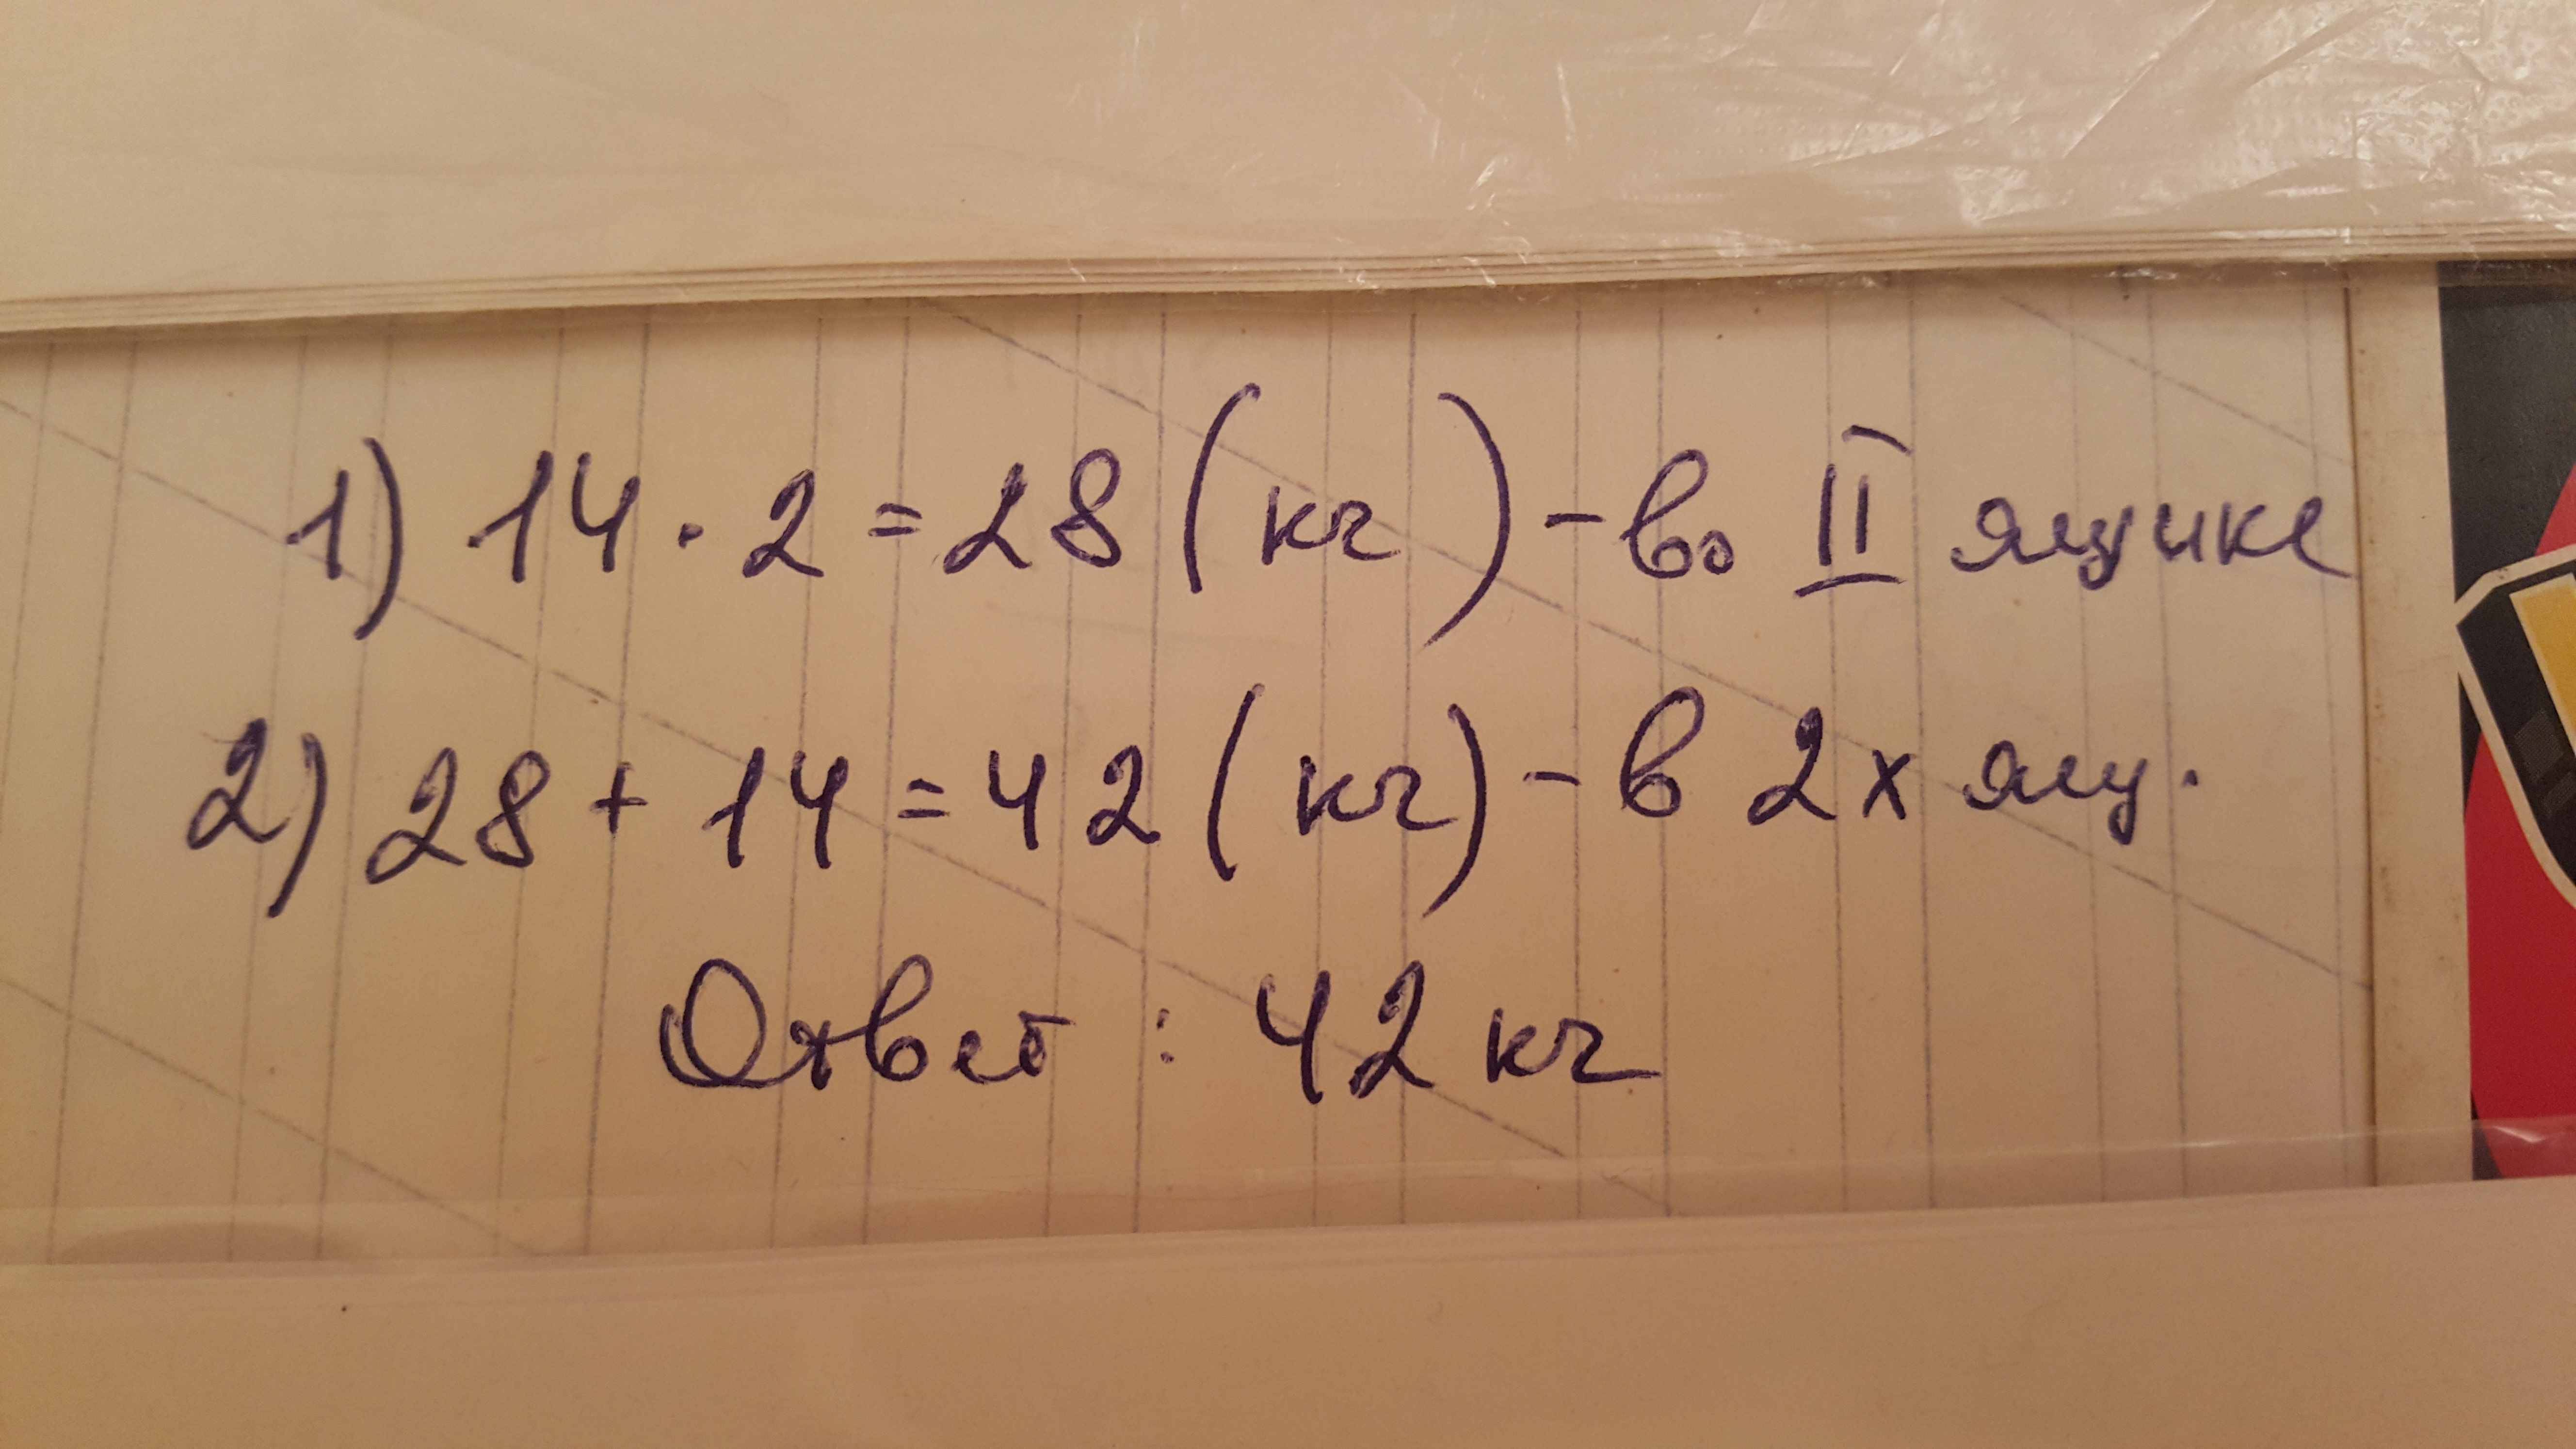 1) 14 · 2 = 28 (кг) - во II ящике
2) 28 + 14 = 42 (кг) - в 2х ящ.
Ответ : 42 кг